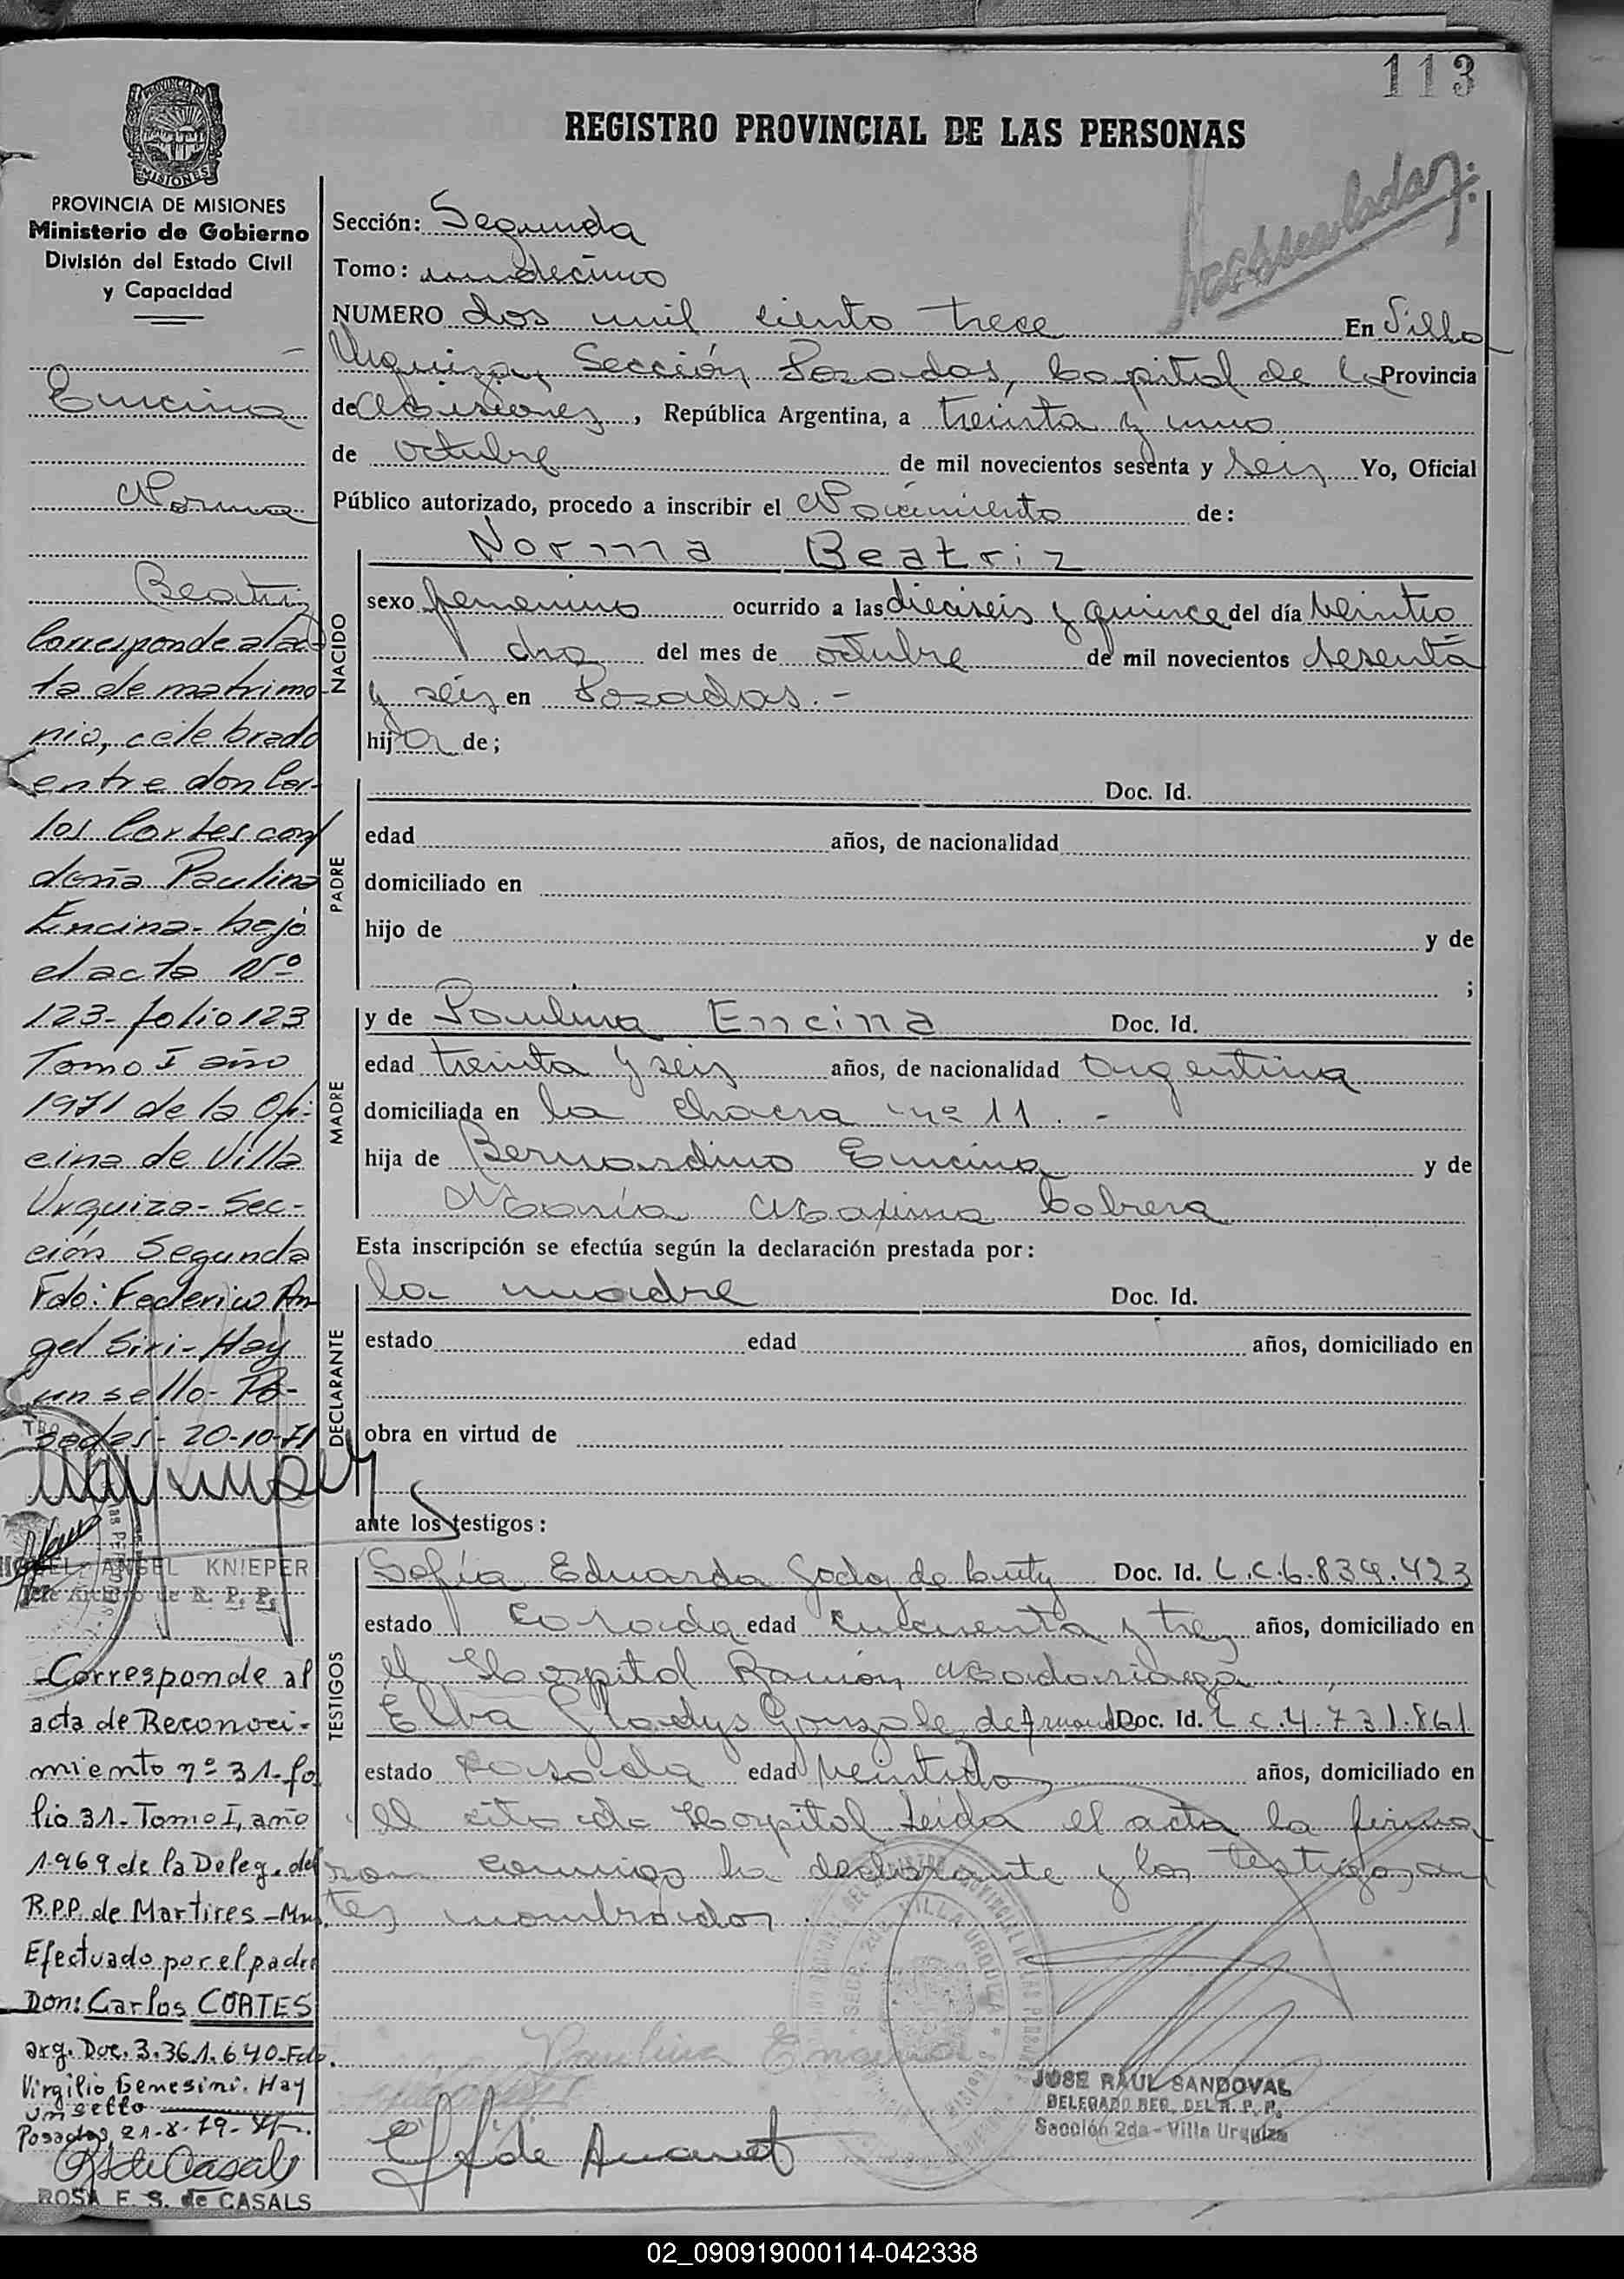 113
REGISTRO PROVINCIAL DE LAS PERSONAS
PROVINCIA DE MISIONES
Ministerio de Gobierno
División del Estado Civil
y Capacidad
Encina
Norma
Beatriz
Corresponde al ac-
ta de matrimo-
nio, celebrado
entre don Car-
los Cortes con
doña Paulina
Encina - bajo
el acta Nº
123 - folio 123
Tomo I año
1971 de la Ofi-
cina de Villa
Urquiza - Sec-
ción Segunda
Fdo: Federico An-
gel Siri - Hay
un sello - Po-
sadas - 20-10-71
MIGUEL ANGEL KNIEPER
Jefe Archivo de R. P. P.
Corresponde al
acta de Reconoci-
miento nº 31 - fo
lio 31 - Tomo I, año
1969 de la Deleg. del
R.P.P. de Martires - Mns.
Efectuado por el padre
Don: Carlos CORTES
arg. Doc. 3.361.640 - Fdo.
Virgilio Genesini. Hay
un sello
Posadas, 21-8-79-
RS de Casals
ROSA E. S. de CASALS
Sección: Segunda
Tomo: undecimo
NUMERO dos mil ciento trece En Villa
Urquiza, Sección Posadas, Capital de la Provincia
de Misiones, República Argentina, a treinta y uno
de octubre de mil novecientos sesenta y seis Yo, Oficial
Público autorizado, procedo a inscribir el Nacimiento de:
NACIDO
Norma Beatriz
sexo femenino ocurrido a las dieciseis y quince del día veintio
dos del mes de octubre de mil novecientos sesenta
y seis en Posadas.-
hija de;
PADRE
Doc. Id.
edad años, de nacionalidad
domiciliado en
hijo de y de
;
MADRE
y de Paulina Encina Doc. Id.
edad treinta y seis años, de nacionalidad argentina
domiciliada en la chacra nº 11. -
hija de Bernardino Encina y de
María Maxima Cabrera
Esta inscripción se efectúa según la declaración prestada por:
DECLARANTE
la madre Doc. Id.
estado edad años, domiciliado en
obra en virtud de
ante los testigos:
TESTIGOS
Sofía Eduarda Godoy de Doc. Id. L.C.6.834.423
estado Casada edad cincuenta y tres años, domiciliado en
el Hospital Ramón Madariaga
Elba Gladys Gonzale de Doc. Id. L.C.4.731.861
estado Casada edad veintidos años, domiciliado en
el citado Hospital. Leída el acta la firma
ron conmigo la declarante y los testigos an
tes nombrados.
REGISTRO PROVINCIAL DE LAS PERSONAS
SECC. 2da. VILLA URQUIZA
Paulina Encina
JOSE RAUL SANDOVAL
DELEGADO REG. DEL R. P. P.
Sección 2da - Villa Urquiza
02_090919000114-042338